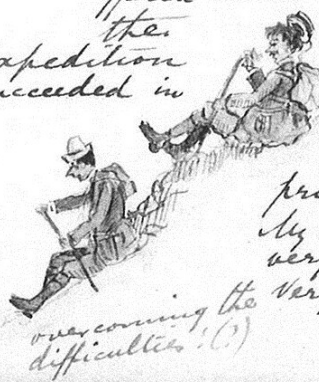 the
expedition
succeeded in
My
very
overcoming the Very
difficulties! (?)